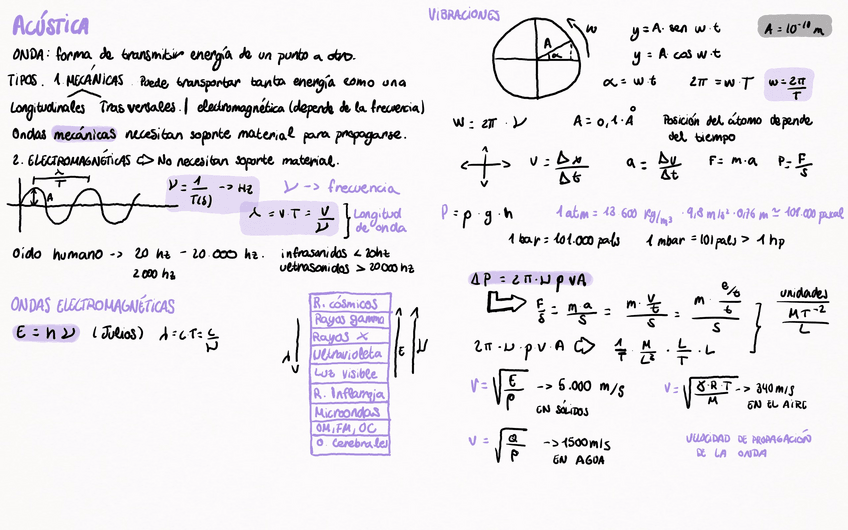 ACÚSTICA
ONDA: forma de transmitir energía de un punto a otro.
TIPOS. 1. MECÁNICAS. Puede transportar tanta energía como una
Longitudinales Trasversales. | electromagnética (depende de la frecuencia)
Ondas mecánicas necesitan soporte material para propagarse.
2. ELECTROMAGNÉTICAS ⇨ No necesitan soporte material.
λ
T
A
ν = 1/T(s) -> Hz
ν -> frecuencia
λ = v·T = v/ν ] Longitud de onda
Oído humano -> 20 hz - 20.000 hz.
2000 hz
infrasonidos < 20hz
ultrasonidos > 20000 hz
ONDAS ELECTROMAGNÉTICAS
E = h ν (Julios) λ = c T = c/ν
R. cósmicos
Rayos gamma
Rayos X
Ultravioleta
Luz visible
R. Inflarroja
Microondas
OM, FM, OC
O. cerebrales
λ
E
ν
VIBRACIONES
A
α
w
y = A· sen w·t
y = A· cos w·t
α = w·t 2π = w·T w = 2π/T
A = 10⁻¹⁰ m
W = 2π · ν A = 0,1·Å Posición del átomo depende
del tiempo
v = Δx/Δt a = Δv/Δt F = m·a P = F/S
P = ρ · g · h 1 atm = 13 600 Kg/m³ · 9,8 m/s² · 0,76 m ≃ 101.000 pascal
1 bar = 101.000 pals 1 mbar = 101 pals > 1 hp
ΔP = 2π·ν ρ v A
F/S = m a/S = m · v/t /S = m · e/t /t /S
2π·ν·ρ v·A ⇨ 1/T · M/L³ · L/T · L
unidades
MT⁻²/L
V = √E/ρ -> 5.000 m/s
EN SÓLIDOS
V = √γ·R·T/M -> 340 m/s
EN EL AIRE
V = √Q/ρ -> 1500 m/s
EN AGUA
VELOCIDAD DE PROPAGACIÓN
DE LA ONDA